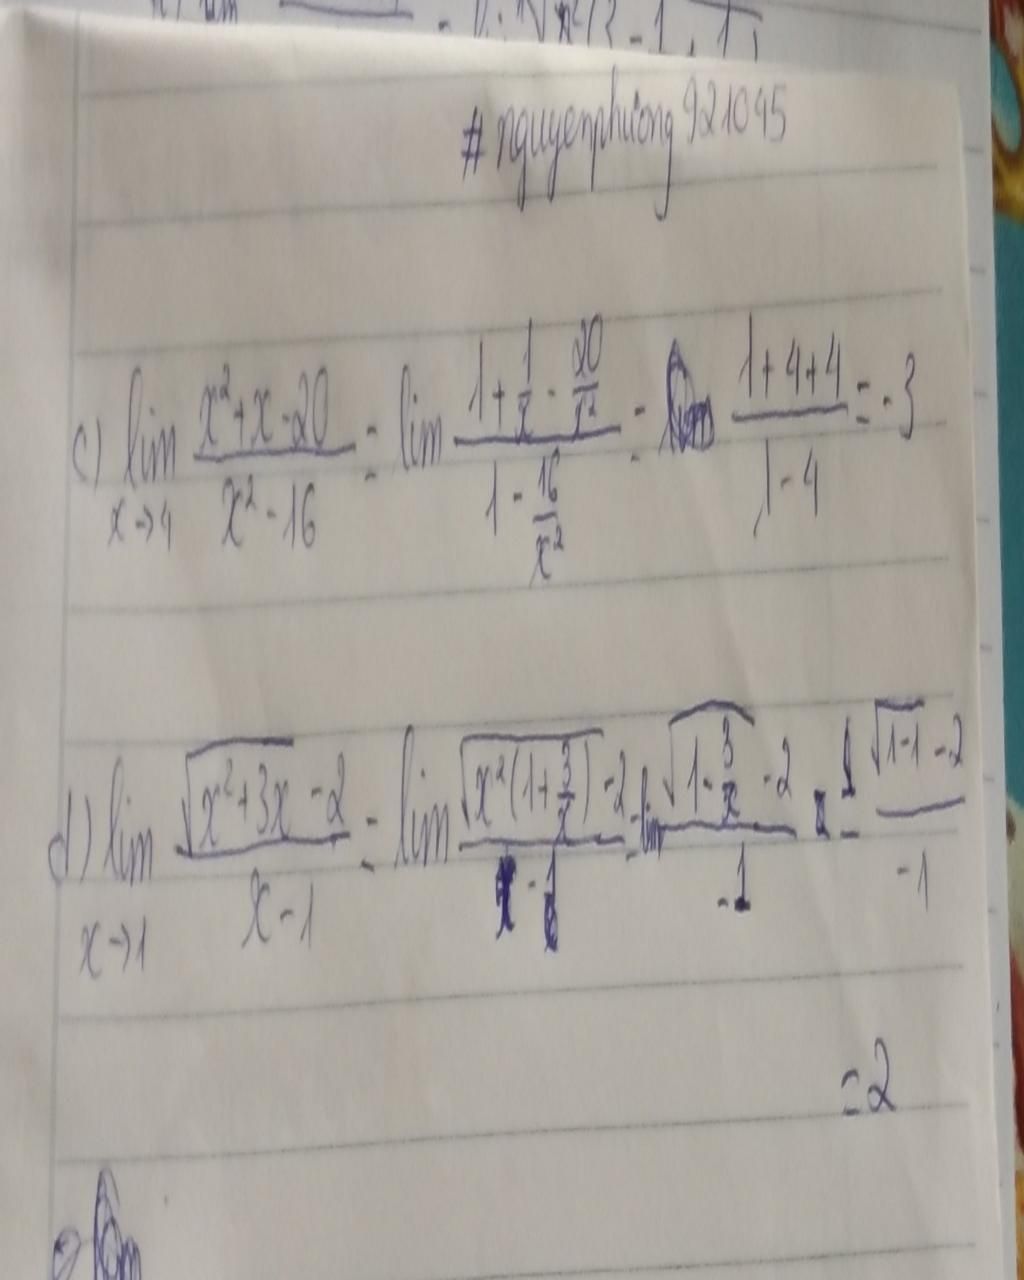 # nguyenphương 921045
c) lim x→4 (x²+x-20)/(x²-16) = lim (1+1/x-20/x²)/(1-16/x²) = (1+4+4)/(1-4) = -3
d) lim x→1 (√(x²+3x) -2)/(x-1) = lim (√(x²(1+3/x)) -2)/(x-1) = lim (√(1-3/x) -2)/-1 = (√(1-1) -2)/-1
=2